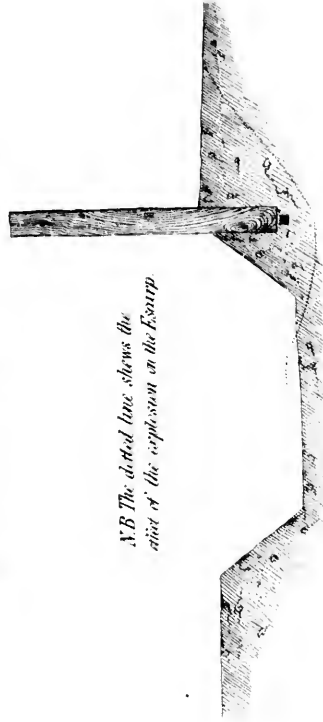 N.B The dotted line shows the
effect of the explosion on the Escarp.